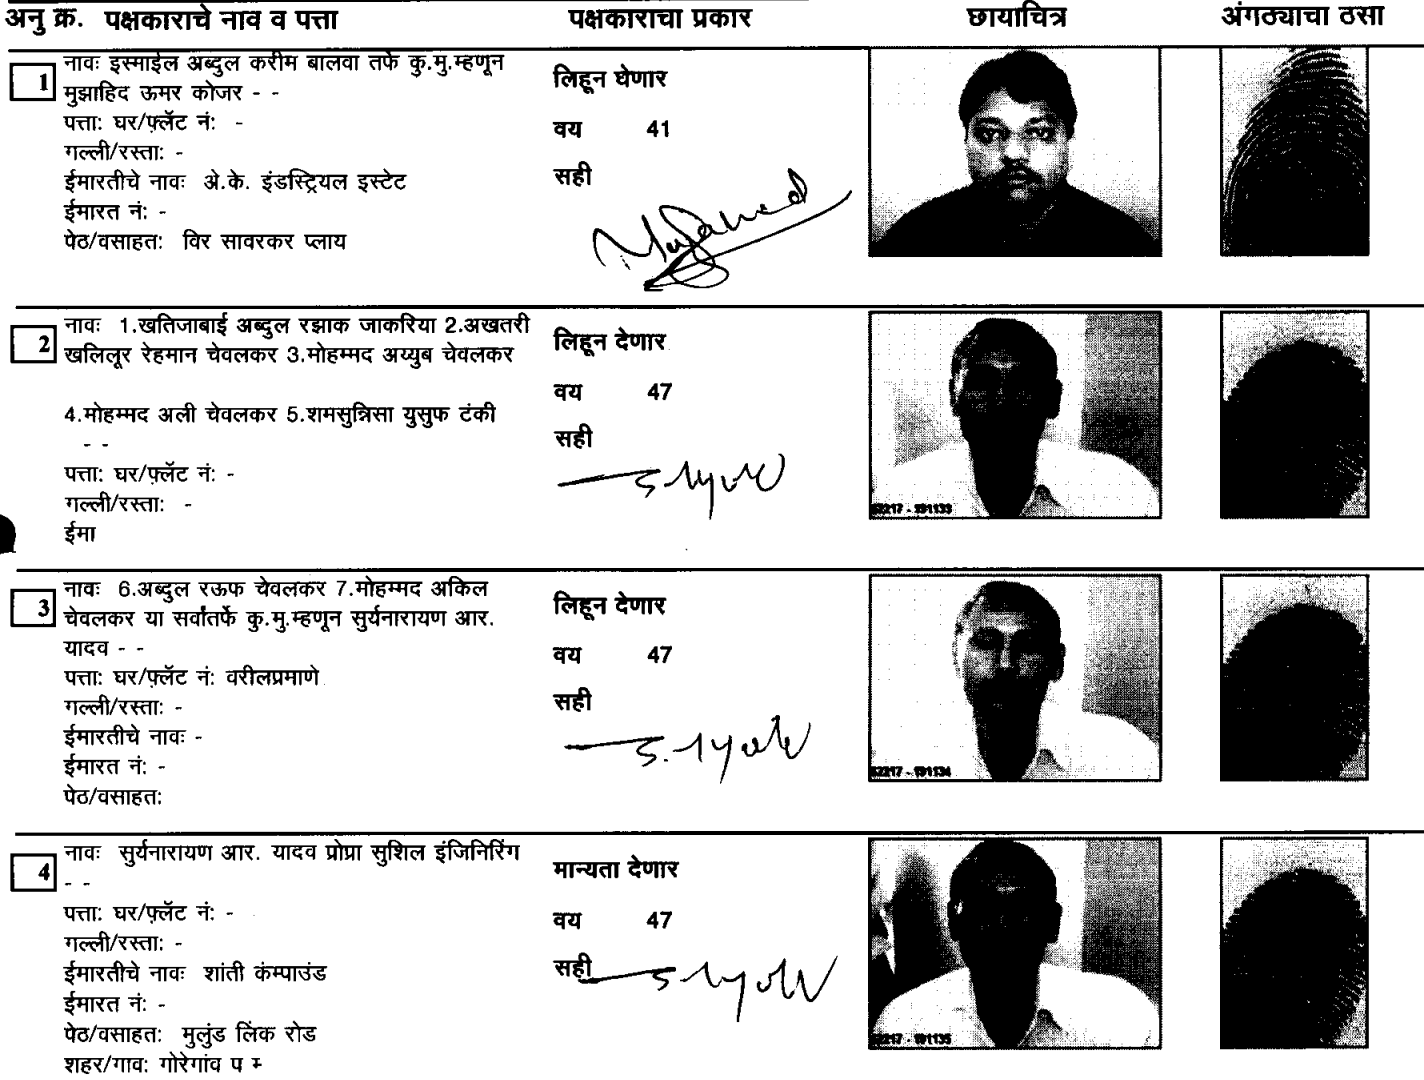 अनु क्र. पक्षकाराचे नाव व पत्ता पक्षकाराचा प्रकार छायाचित्र अंगठ्याचा ठसा
1 नावः इस्माईल अब्दुल करीम बालवा तर्फे कु.मु.म्हणून
मुझाहिद ऊमर कोजर - -
पत्ता: घर/फ्लॅट नं: -
गल्ली/रस्ता: -
ईमारतीचे नावः अे.के. इंडस्ट्रियल इस्टेट
ईमारत नं: -
पेठ/वसाहत: विर सावरकर प्लाय
लिहून घेणार
वय 41
सही
2 नावः 1.खतिजाबाई अब्दुल रझाक जाकरिया 2.अखतरी
खलिलूर रेहमान चेवलकर 3.मोहम्मद अय्युब चेवलकर
4.मोहम्मद अली चेवलकर 5.शमसुन्निसा युसुफ टंकी
- -
पत्ता: घर/फ्लॅट नं: -
गल्ली/रस्ता: -
ईमा
लिहून देणार
वय 47
सही
62217 - 191133
3 नावः 6.अब्दुल रऊफ चेवलकर 7.मोहम्मद अकिल
चेवलकर या सर्वांतर्फे कु.मु.म्हणून सुर्यनारायण आर.
यादव - -
पत्ता: घर/फ्लॅट नं: वरीलप्रमाणे
गल्ली/रस्ता: -
ईमारतीचे नावः -
ईमारत नं: -
पेठ/वसाहत:
लिहून देणार
वय 47
सही
62217 - 191134
4 नावः सुर्यनारायण आर. यादव प्रोप्रा सुशिल इंजिनिरिंग
- -
पत्ता: घर/फ्लॅट नं: -
गल्ली/रस्ता: -
ईमारतीचे नावः शांती कंम्पाउंड
ईमारत नं: -
पेठ/वसाहत: मुलुंड लिंक रोड
शहर/गाव: गोरेगांव प
मान्यता देणार
वय 47
सही
62217 - 191135